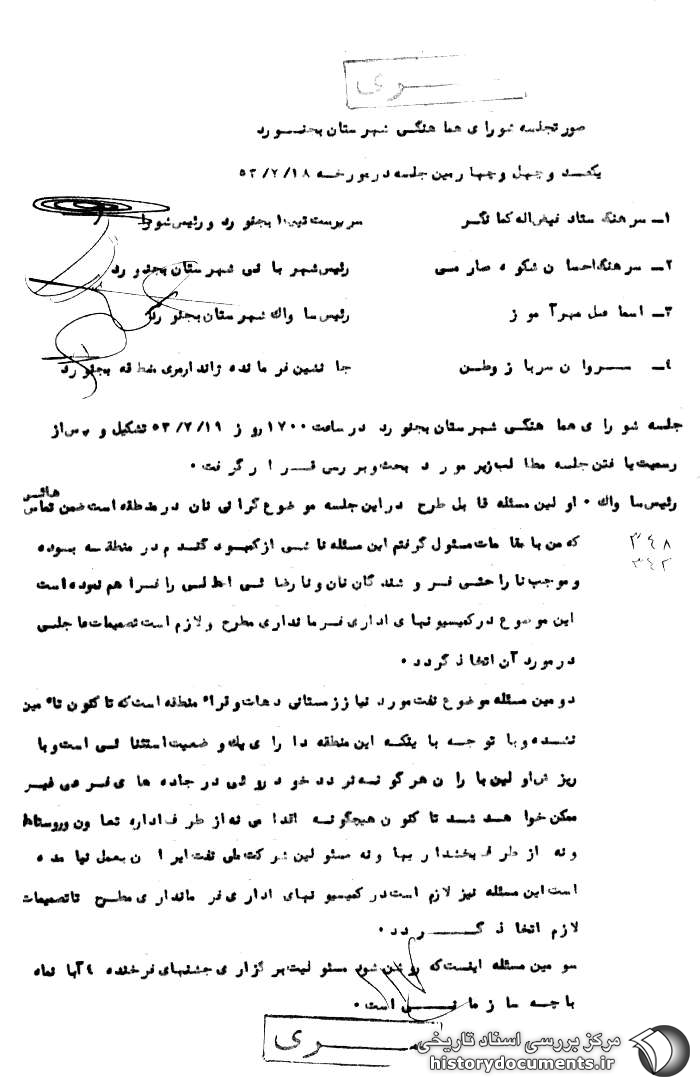 سری
صورتجلسه شورای هماهنگی شهرستان بجنورد
یکصد و چهل و چهارمین جلسه در مورخه ۵۳/۷/۱۸
۱ـ سرهنگ ستاد فیض‌اله کمانگر سرپرست تیپ ۱ بجنورد و رئیس شورا
۲ـ سرهنگ احسان شکوه صارمی رئیس شهربانی شهرستان بجنورد
۳ـ اسماعیل مهرآموز رئیس ساواک شهرستان بجنورد
۴ـ سروان سرباز وطن جانشین فرمانده ژاندارمری منطقه بجنورد
جلسه شورای هماهنگی شهرستان بجنورد در ساعت ۱۷۰۰ روز ۵۳/۷/۱۹ تشکیل و پس از
رسمیت یافتن جلسه مطالب زیر مورد بحث و بررسی قرار گرفت ۰
رئیس ساواک ۰ اولین مسئله قابل طرح در این جلسه موضوع گرانی نان در منطقه است ضمن تماس‌هائی
که من با مقامات مسئول گرفتم این مسئله ناشی از کمبود گندم در منطقه بوده
۳۴۸
۳۴۲
و موجب ناراحتی فروشندگان نان و نارضائی اهالی را فراهم نموده است
این موضوع در کمیسیونهای اداری فرمانداری مطرح و لازم است تصمیمات عاجلی
در مورد آن اتخاذ گردد ۰
دومین مسئله موضوع نفت مورد نیاز زمستانی دهات و قراء منطقه است که تاکنون تامین
نشده و با توجه باینکه این منطقه دارای یک وضعیت استثنائی است و با
ریزش اولین باران هرگونه تردد خودروئی در جاده های فرعی غیر
ممکن خواهد شد تاکنون هیچگونه اقدامی نه از طرف اداره تعاون و روستاها
و نه از طرف بخشداریها و نه مسئولین شرکت ملی نفت ایران بعمل نیامده
است این مسئله نیز لازم است در کمیسیونهای اداری فرمانداری مطرح تا تصمیمات
لازم اتخاذ گردد ۰
سومین مسئله اینست که روشن شود مسئولیت برگزاری جشنهای فرخنده ۴ آبانماه
با چه سازمانی است ۰
سری
مرکز بررسی اسناد تاریخی
historydocuments.ir